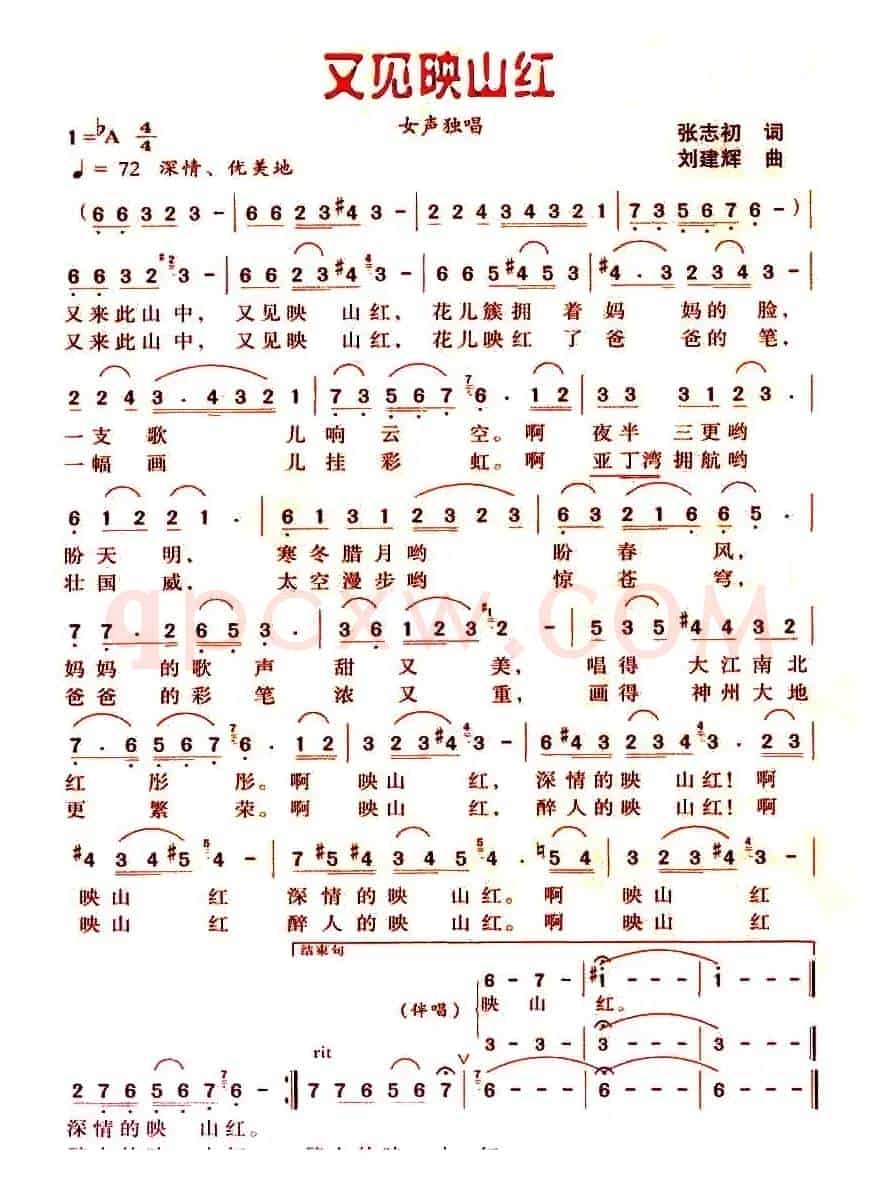 又见映山红
女声独唱
1=♭A 4/4
张志初 词
♩= 72 深情、优美地
刘建辉 曲
(6 6 3 2 3 - | 6 6 2 3 #4 3 - | 2 2 4 3 4 3 2 1 | 7 3 5 6 7 6 - ) |
6 6 3 2 #2 3 - | 6 6 2 3 #4 4 3 - | 6 6 5 #4 5 3 | #4 . 3 2 3 4 3 |
又来此山中，又见映 山红，花儿簇拥 着妈 妈的脸，
又来此山中，又见映 山红，花儿映红 了爸 爸的笔，
2 2 4 3 . 4 3 2 1 | 7 3 5 6 7 7 6 . 1 2 | 3 3 3 1 2 3 . |
一支歌 儿响云 空。啊 夜半 三更哟
一幅画 儿挂彩 虹。啊 亚丁湾拥航哟
6 1 2 2 1 . | 6 1 3 1 2 3 2 3 | 6 3 2 1 6 6 5 . |
盼天 明、 寒冬腊月哟 盼 春 风，
壮国 威、 太空漫步哟 惊 苍 穹，
7 7 . 2 6 5 3 . | 3 6 1 2 3 #1 2 - | 5 3 5 #4 4 3 2 |
妈妈 的歌 声 甜 又 美， 唱得 大江南北
爸爸 的彩 笔 浓 又 重， 画得 神州大地
7 . 6 5 6 7 7 6 . 1 2 | 3 2 3 #4 4 3 - | 6 #4 3 2 3 4 4 3 . 2 3 |
红 彤 彤。啊 映山 红，深情的映 山红！啊
更 繁 荣。啊 映山 红，醉人的映 山红！啊
#4 3 4 #5 5 4 - | 7 #5 #4 3 4 5 5 4 . ♮5 4 | 3 2 3 #4 4 3 - |
映山 红 深情的映 山红。啊 映山 红
映山 红 醉人的映 山红。啊 映山 红
结束句
6 - 7 - | #1 - - - | 1 - - - ‖
(伴唱) 映 山 红。
3 - 3 - | 3 - - - | 3 - - - ‖
rit
2 7 6 5 6 7 7 6 - :‖ 7 7 6 5 6 7 ∨ | 7 6 - - - | 6 - - - | 6 - - - ‖
深情的映 山红。
qpcxw.com